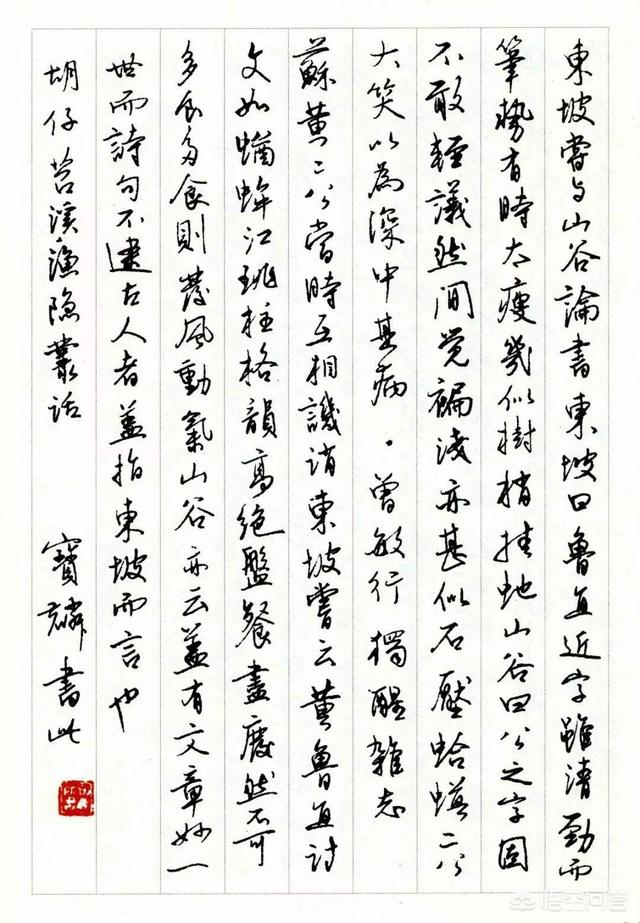 東坡嘗与山谷論書東坡曰魯直近字雖清勁而
筆勢有時太瘦幾似樹梢挂蛇山谷曰公之字固
不敢輕議然間覺褊淺亦甚似石壓蛤蟆二公
大笑以為深中其病·曾敏行獨醒雜志
蘇黃二公當時互相譏誚東坡嘗云黃魯直詩
文如蝤蛑江珧柱格韻高絕盤餐盡廢然不可
多食多食則發風動氣山谷亦云蓋有文章妙一
世而詩句不逮古人者蓋指東坡而言也
胡仔苕溪漁隱叢話 寶麟書此
悟空问答